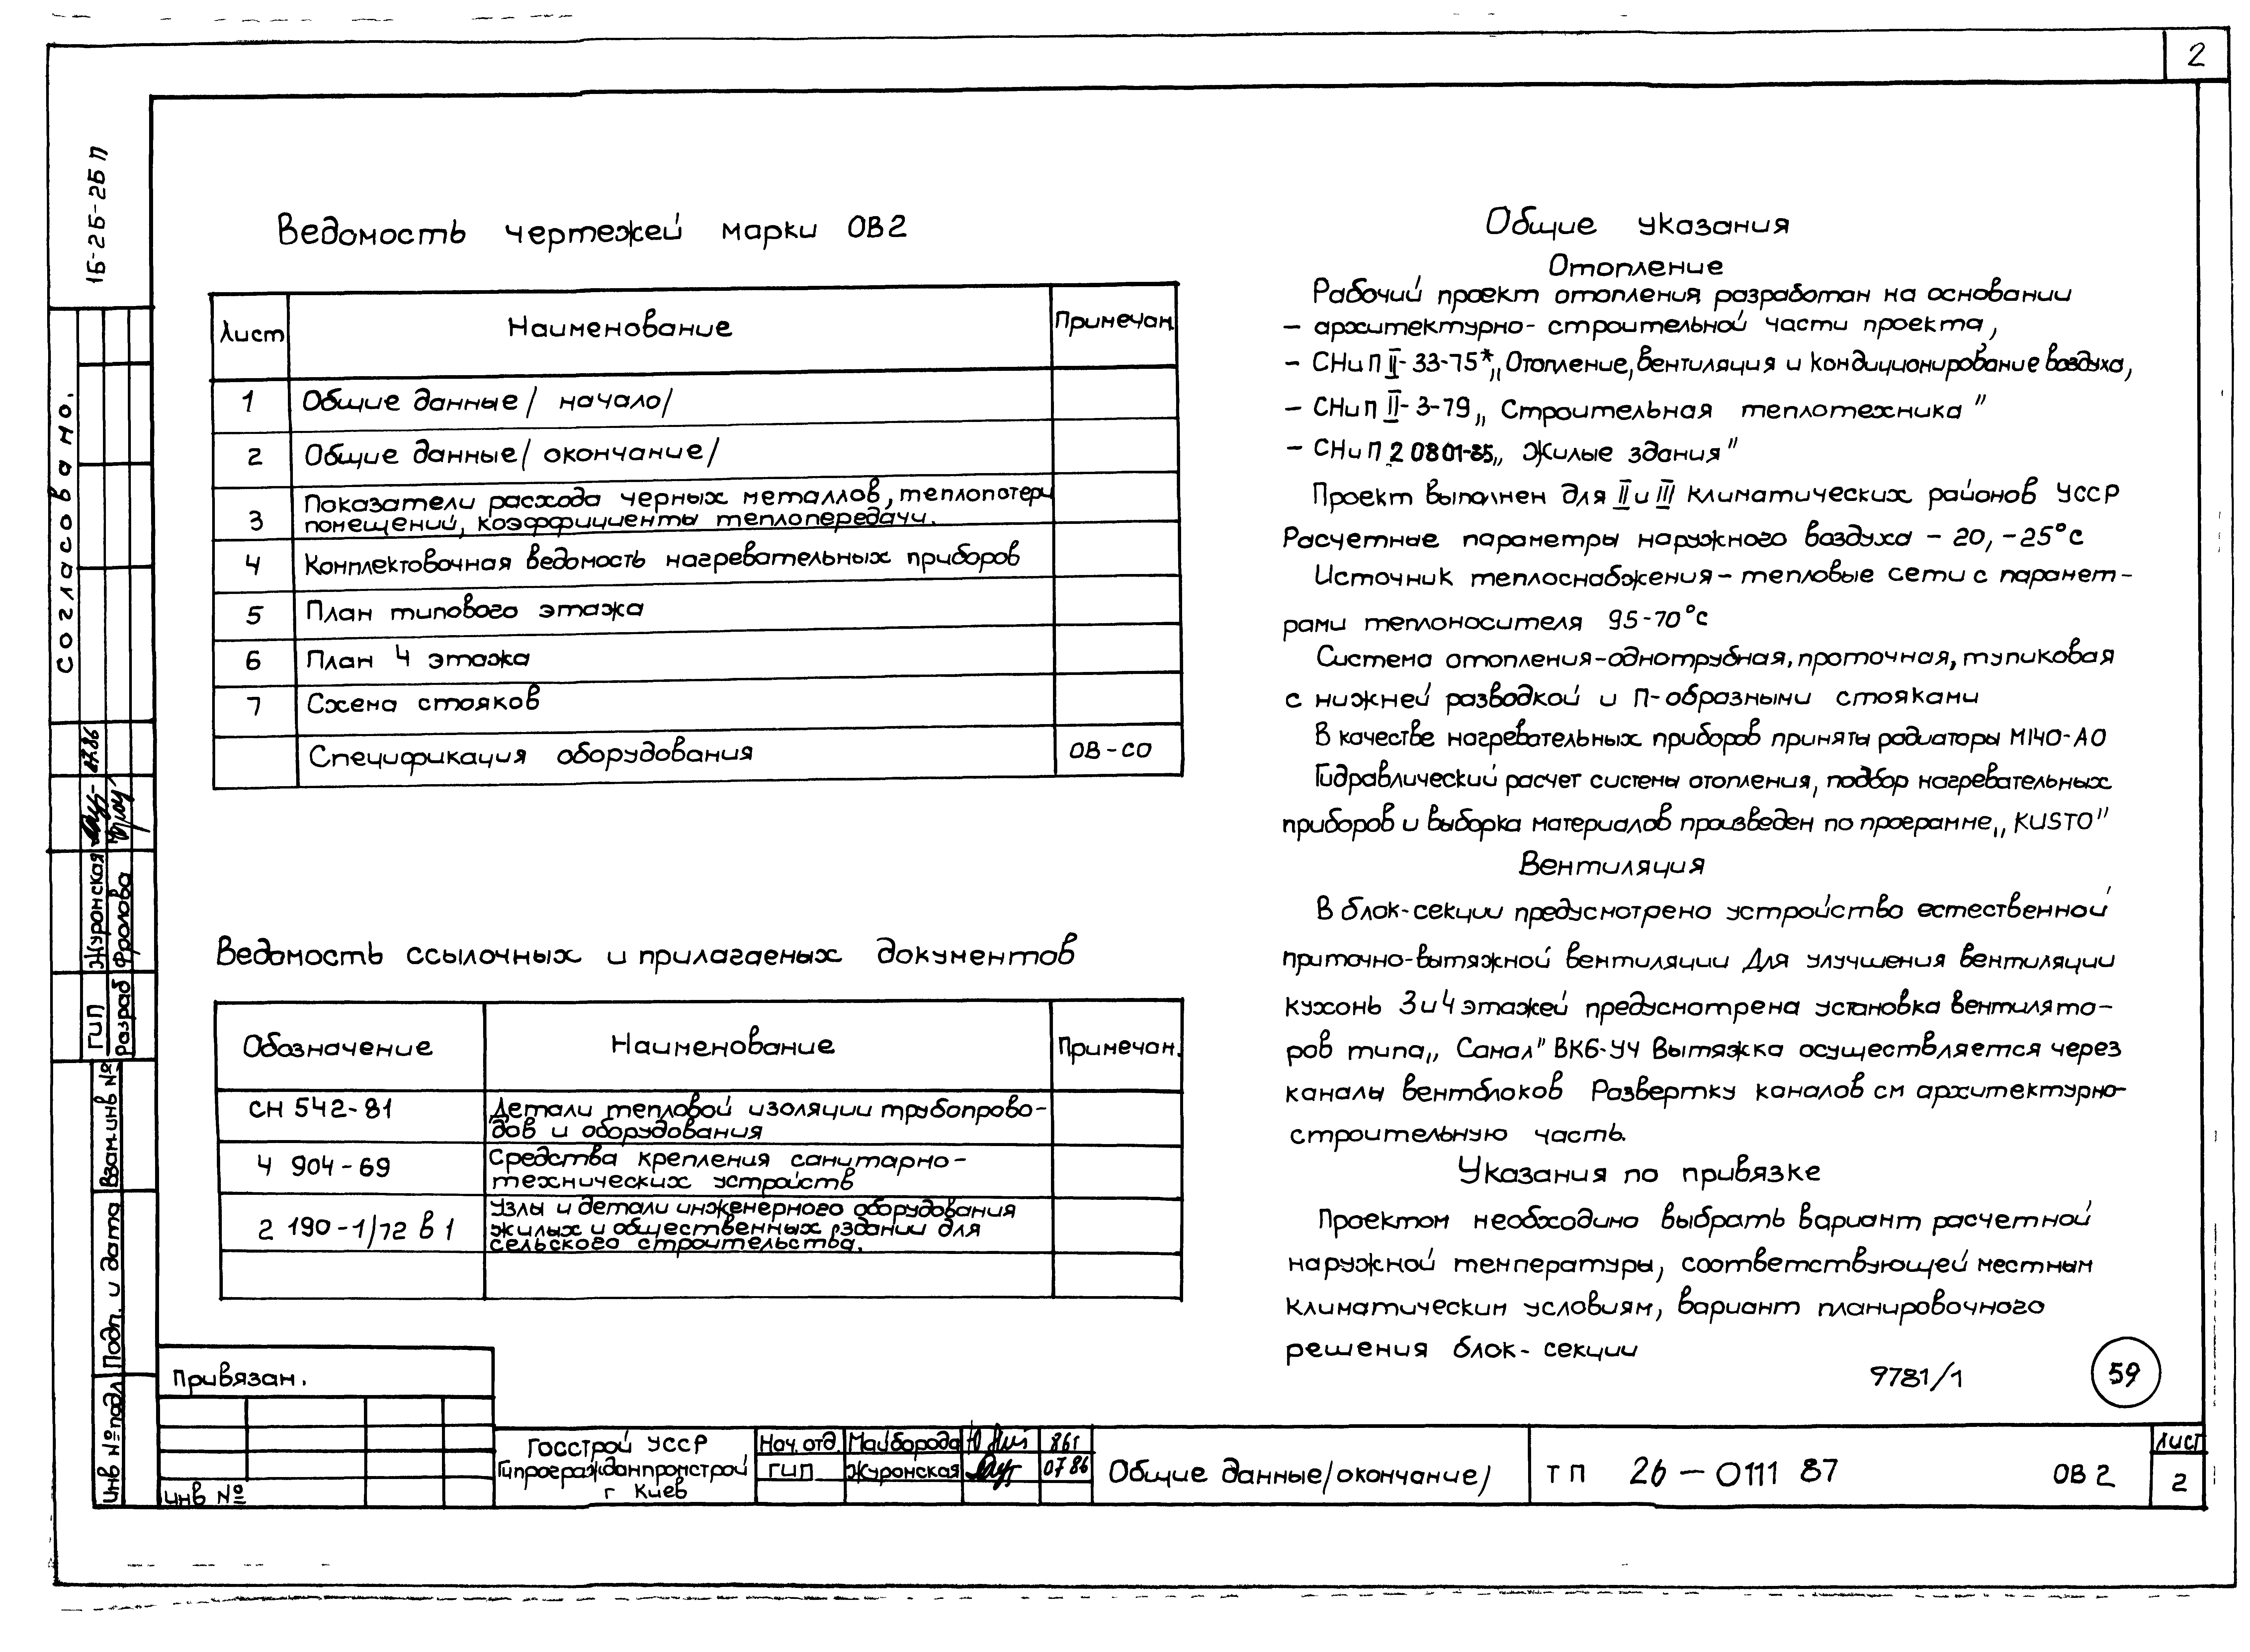 2
1Б-2Б-2Б П
Ведомость чертежей марки ОВ2
Лист Наименование Примечан.
1 Общие данные / начало/
2 Общие данные / окончание/
3 Показатели расхода черных металлов, теплопотери
помещений, коэффициенты теплопередачи.
4 Комплектовочная ведомость нагревательных приборов
5 План типового этажа
6 План 4 этажа
7 Схема стояков
Спецификация оборудования ОВ-СО
Ведомость ссылочных и прилагаемых документов
Обозначение Наименование Примечан.
СН 542-81 Детали тепловой изоляции трубопрово-
дов и оборудования
4 904-69 Средства крепления санитарно-
технических устройств
2 190-1/72 в 1 Узлы и детали инженерного оборудования
жилых и общественных зданий для
сельского строительства.
Общие указания
Отопление
Рабочий проект отопления разработан на основании
– архитектурно- строительной части проекта,
– СНиП II-33-75* „Отопление, вентиляция и кондиционирование воздуха,
– СНиП II-3-79 „ Строительная теплотехника "
– СНиП 2 08 01-85 „ Жилые здания "
Проект выполнен для II и III климатических районов УССР
Расчетные параметры наружного воздуха – 20, –25°с
Источник теплоснабжения – тепловые сети с парамет-
рами теплоносителя 95-70°с
Система отопления-однотрубная, проточная, тупиковая
с нижней разводкой и П-образными стояками
В качестве нагревательных приборов приняты радиаторы М140-АО
Гидравлический расчет системы отопления, подбор нагревательных
приборов и выборка материалов произведен по программе „ KUSTO "
Вентиляция
В блок-секции предусмотрено устройство естественной
приточно-вытяжной вентиляции Для улучшения вентиляции
кухонь 3 и 4 этажей предусмотрена установка вентилято-
ров типа „ Санал " ВК6-У4 Вытяжка осуществляется через
каналы вентблоков Развертку каналов см архитектурно-
строительную часть.
Указания по привязке
Проектом необходимо выбрать вариант расчетной
наружной температуры, соответствующей местным
климатическим условиям, вариант планировочного
решения блок- секции
9781/1 59
Согласовано.
ГИП Журонская 07.86
Разраб Фролова
Взам.инв №
Подп. и дата
Инв № подл
Привязан.
инв №
Госстрой УССР
Гипрогражданпромстрой
г Киев
Нач. отд. Майборода 86г
ГИП Журонская 07 86
Общие данные /окончание/
ТП 26–0111 87 ОВ 2
Лист
2